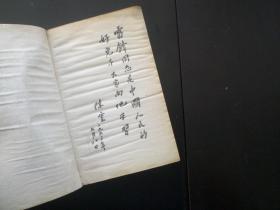 雷锋同志是中國人民的
好兒子大家向他学習
陳雲